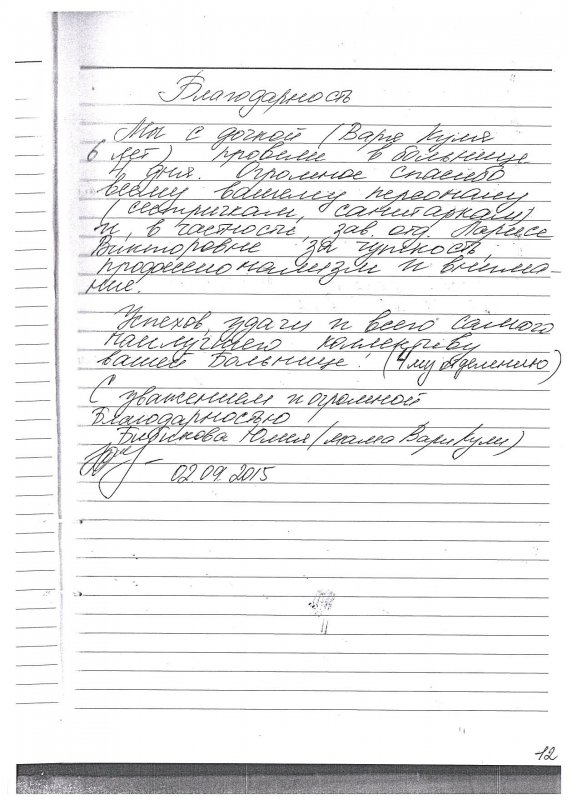 Благодарность
Мы с дочкой (Варя Куля
6 лет) провели в больнице
4 дня. Огромное спасибо
всему вашему персоналу
(сестричкам, санитаркам)
и, в частности, зав. отд. Ларисе
Викторовне за чуткость,
профессионализм и внима-
ние.
Успехов, удачи и всего самого
наилучшего коллективу
вашей Больнице! (4му отделению)
С уважением и огромной
Благодарностью
Бибикова Юлия (мама Вари Кули)
02.09.2015
12